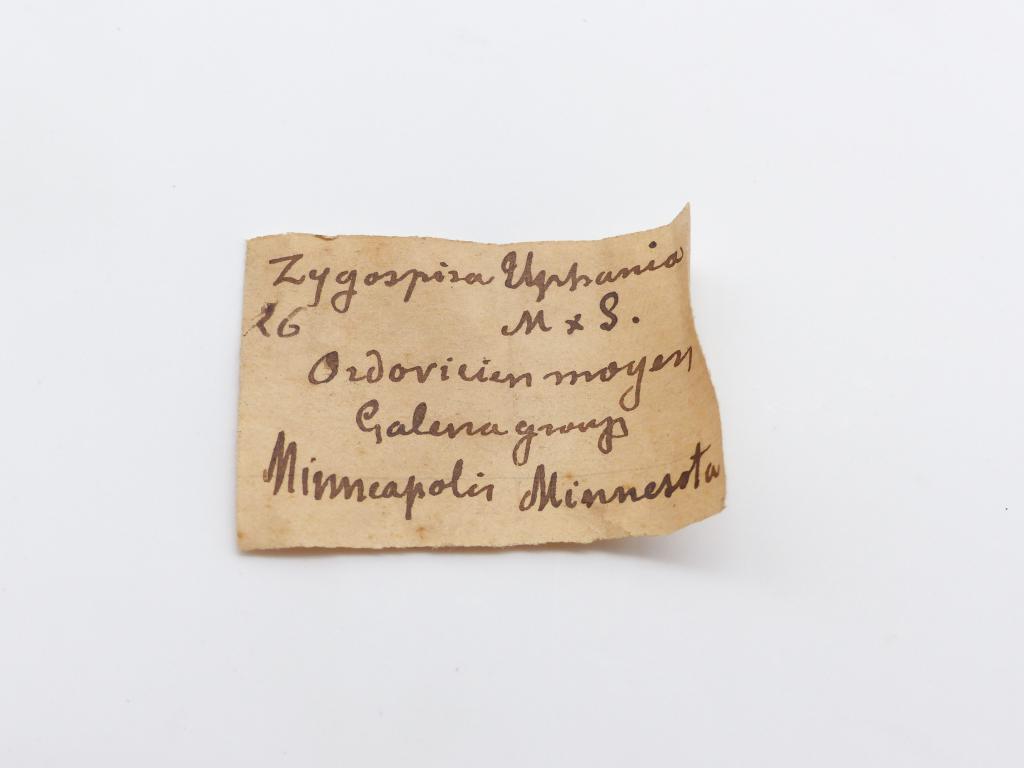 Zygospira Uphania
26 M x S.
Ordovicien moyen
Galena group
Minneapolis Minnesota